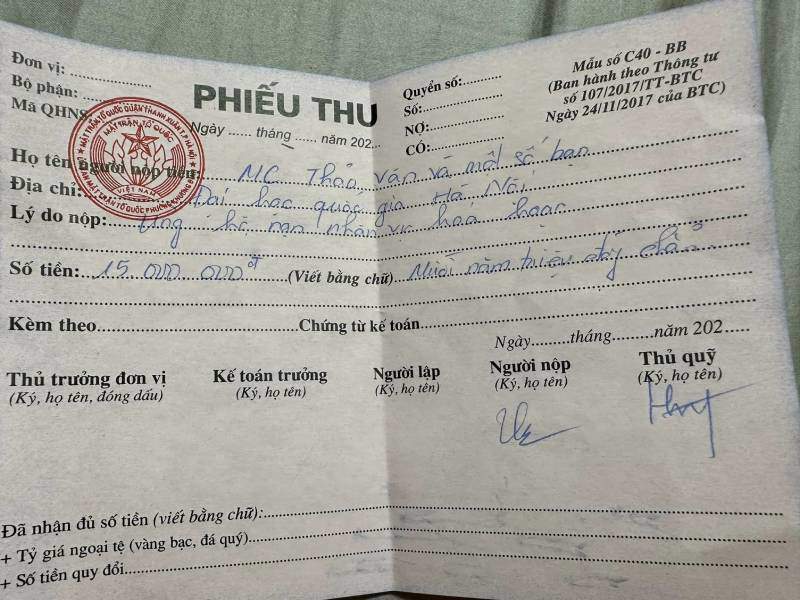 Đơn vị: ....................
Bộ phận: ....................
Mã QHNS:
PHIẾU THU
Ngày ...... tháng ...... năm 202...
Quyển số:..........
Số:....................
NỢ:....................
CÓ:....................
Mẫu số C40 - BB
(Ban hành theo Thông tư
số 107/2017/TT-BTC
Ngày 24/11/2017 của BTC)
MẶT TRẬN TỔ QUỐC
VIỆT NAM
Họ tên người nộp tiền: MC Thảo Vân và một số bạn
Địa chỉ: Đại học quốc gia Hà Nội
Lý do nộp: Ủng hộ nạn nhân vụ hỏa hoạn
Số tiền: 15 000 000đ (Viết bằng chữ) Mười năm triệu đồng chẵn
Kèm theo....................Chứng từ kế toán....................
Ngày..........tháng..........năm 202.....
Thủ trưởng đơn vị
(Ký, họ tên, đóng dấu)
Kế toán trưởng
(Ký, họ tên)
Người lập
(Ký, họ tên)
Người nộp
(Ký, họ tên)
Thủ quỹ
(Ký, họ tên)
Đã nhận đủ số tiền (viết bằng chữ):....................
+ Tỷ giá ngoại tệ (vàng bạc, đá quý)....................
+ Số tiền quy đổi....................